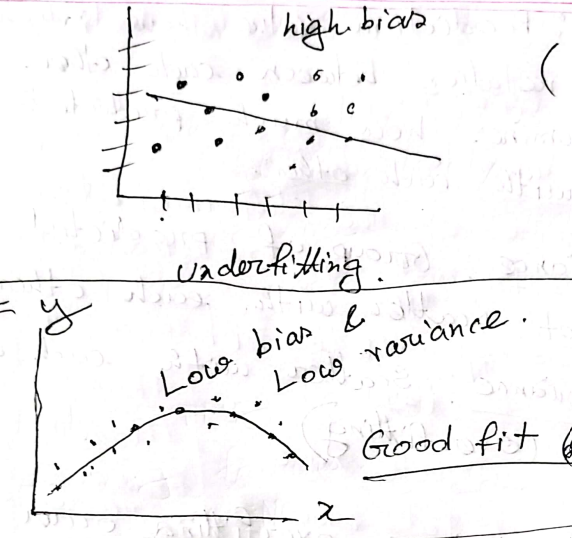 high bias
underfitting.
= y
Low bias &
Low variance.
Good fit
x